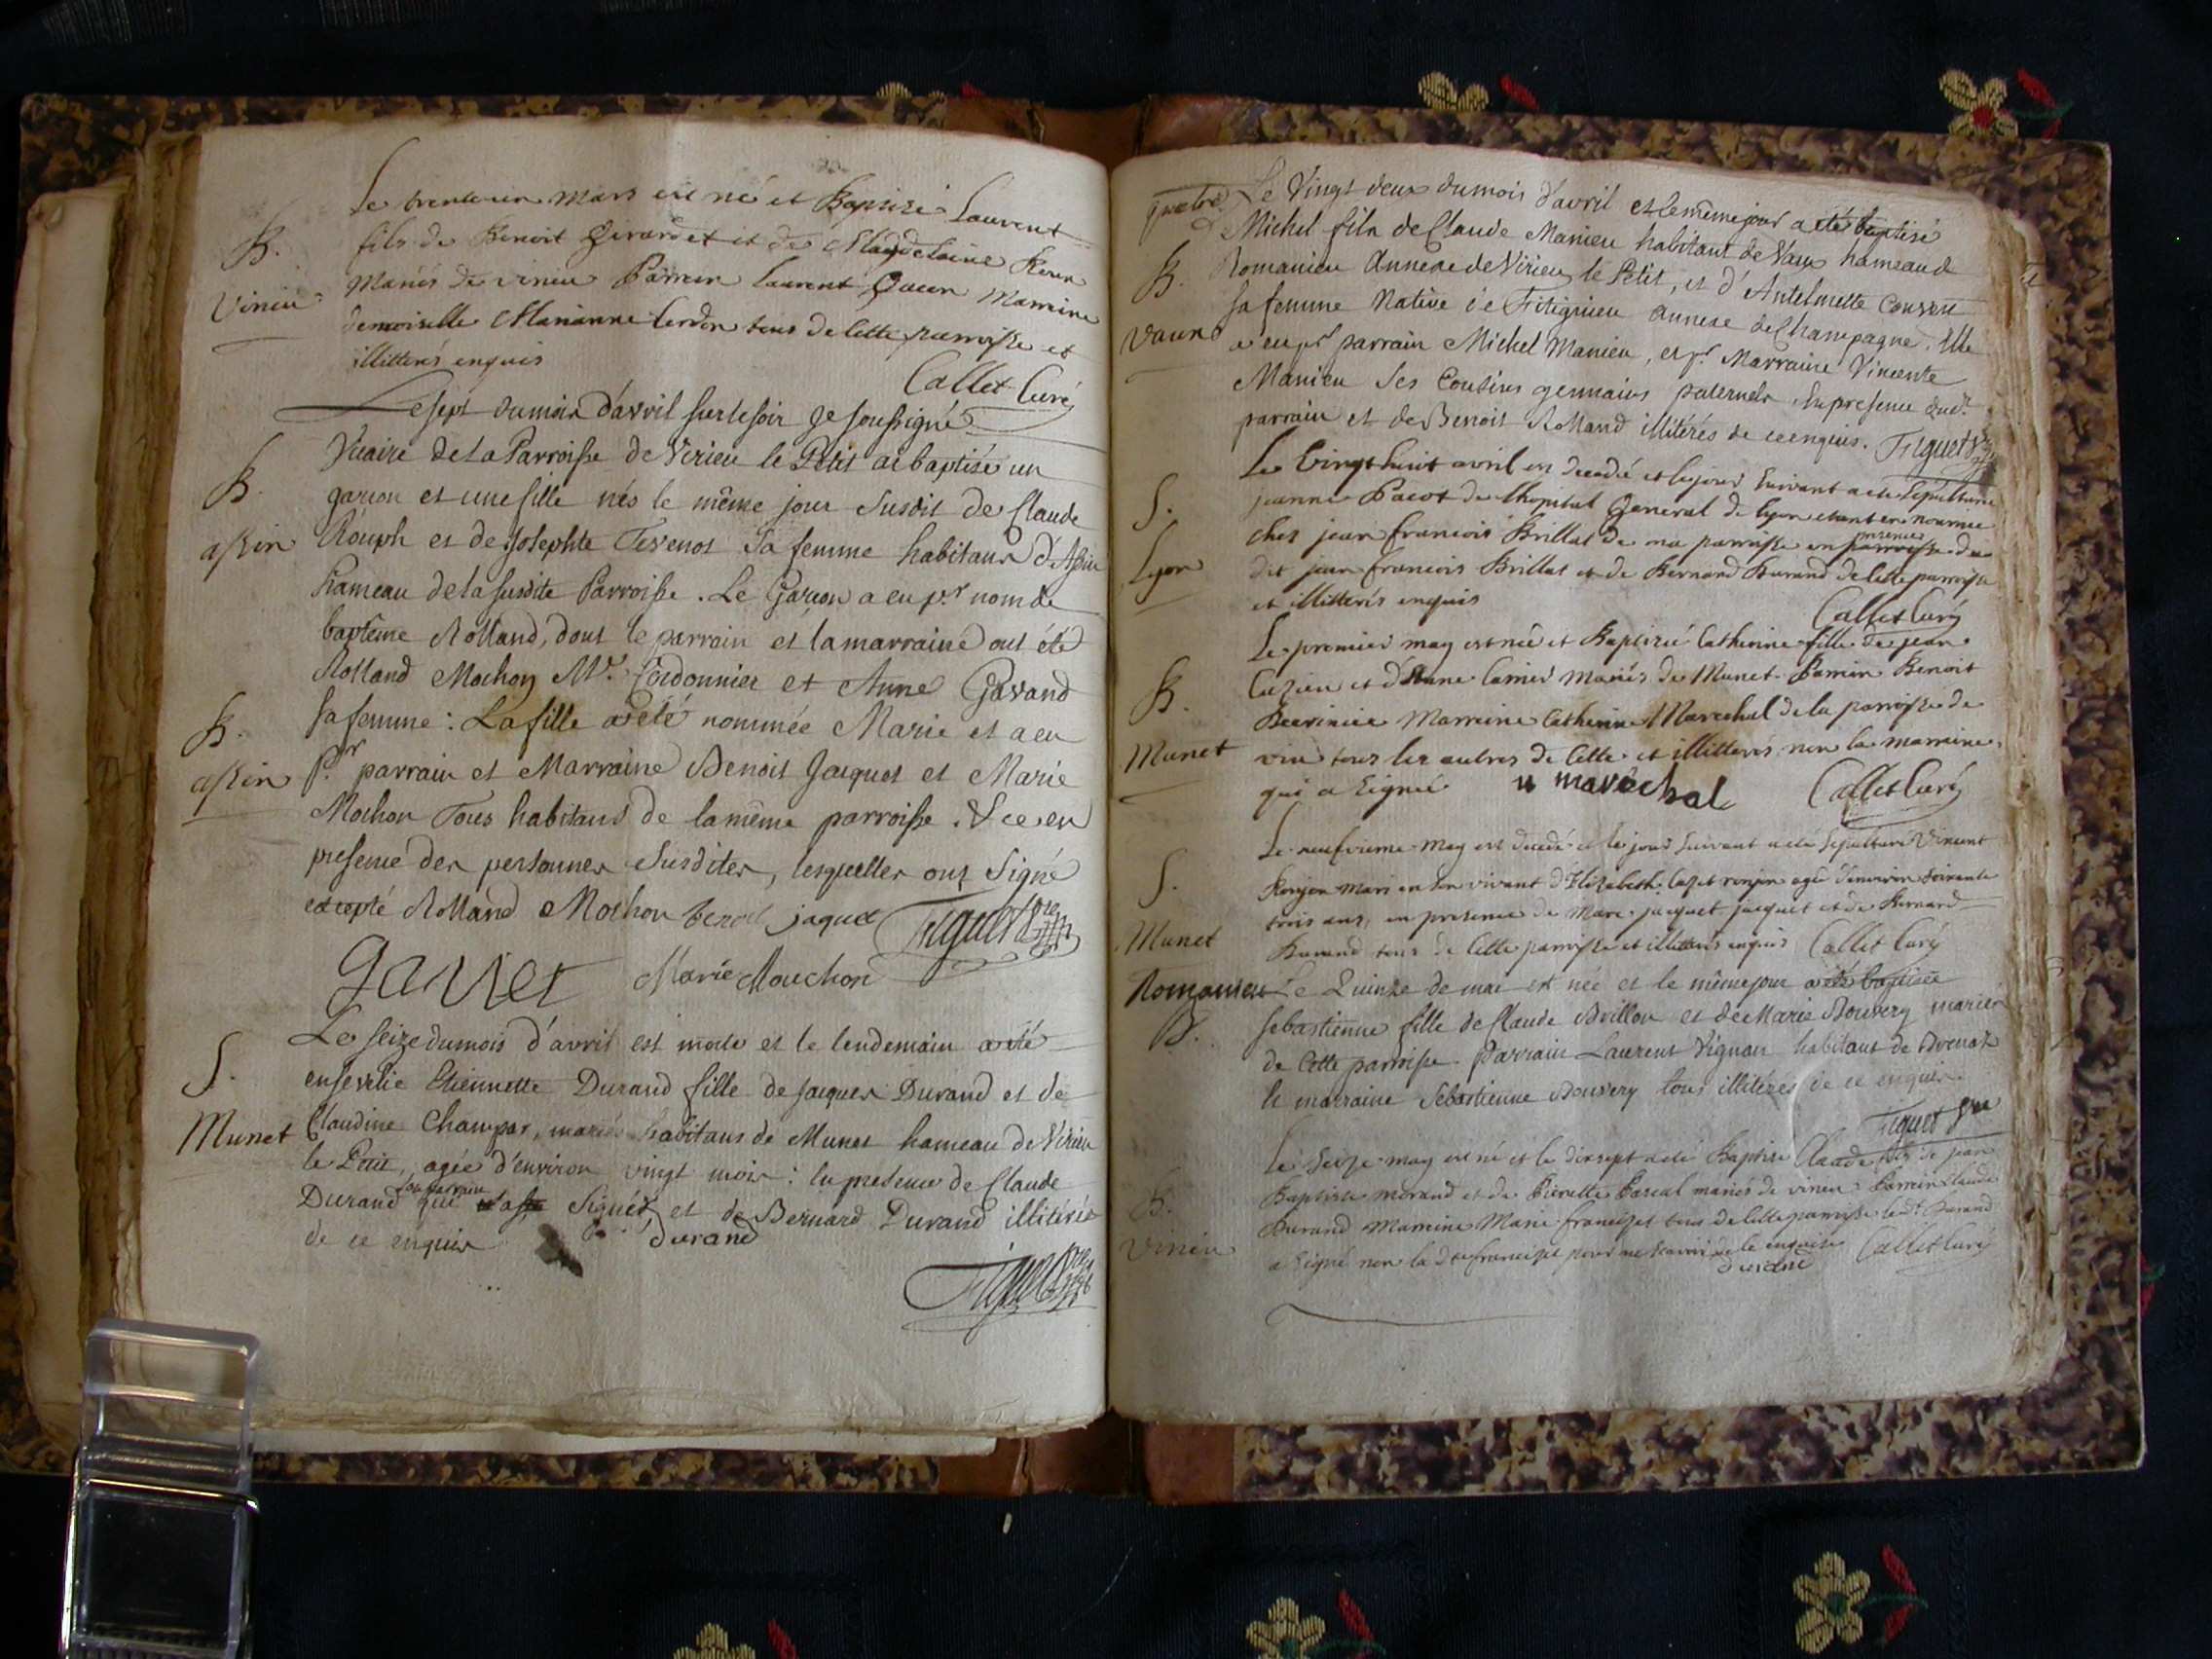 Le trente un mars est né et Baptisé Laurent
B. fils de Benoit Girardet et de Magdelaine
Virieu Mariés de virieu Parrain Laurent Marraine
demoiselle Marianne tous de cette parroisse et
illitterés enquis
Callet Curé
Le sept du mois d'avril sur le soir je soussigné
Vicaire de la Parroisse de Virieu le Petit ai baptisé un
B. garçon et une fille nés le même jour susdit de Claude
assin Rouph et de Josephte Tevenot sa femme habitans d'Assin
hameau de la susdite Parroisse. Le Garçon a eu pr. nom de
baptême Rolland, dont le parrain et la marraine ont été
Rolland Mochon Mr. Cordonnier et Anne Gavand
B. sa femme : La fille a été nommée Marie et a eu
assin pr. parrain et Marraine Benoit Jacquet et Marie
Mochon Tous habitans de la même parroisse. & ce en
presence des personnes susdites, lesquelles ont signé
excepté Rolland Mochon benoit jaquet Figuet
Marie Mouchon
Le seize du mois d'avril est morte et le lendemain a été
S. ensevelie Etiennette Durand fille de jacques Durand et de
Munet Claudine Champar, mariés habitans de Munet hameau de Virieu
le Petit, agée d'environ vingt mois : En presence de Claude
Durand son parrain qui a signé, et de Bernard Durand illitérés
de ce enquis durand
Figuet
quatre Le Vingt deux du mois d'avril et le même jour a été baptisé
Michel fils de Claude Manieu habitant de Vaux hameau de
B. Romanieu Annexe de Virieu le Petit, et d'Antelmette
sa femme Native de Fitignieu annexe de Champagne. Elle
Vaux a eu pr. parrain Michel Manieu, et pr. Marraine Vincente
Manieu ses Cousins germains paternels. En presence dud.
parrain et de Benoit Rolland illitérés de ce enquis. Figuet
Le Vingt huit avril est decedé et le jour suivant a été sepulturé
S. jeanne Pacot de l'hopital General de lyon etant en nourrice
chez jean francois Brillat de ma parroisse en presence du
Lyon dit jean francois Brillat et de Bernard Durand de cette parroisse
et illitterés enquis Callet Curé
Le premier may est née et Baptisée Catherine fille de jean
B. et d'Anne mariés de Munet. Parrain Benoit
Marraine Catherine Marechal de la parroisse de
Munet tous les autres de Cette et illitterés non la marraine
qui a signé marèchal Callet Curé
Le neufvieme may est decedé et le jour suivant a été sepulturé Vincent
S. mari en son vivant d'Elizabeth agé d'environ soixante
trois ans, en presence de Marc jacquet et de Bernard
Munet Durand tous de Cette parroisse et illitterés enquis Callet Curé
Romanieu Le Quinze de mai est née et le même jour a été baptisée
B. sebastienne fille de Claude Brillon et de Marie Bouvery mariés
de Cette parroisse. Parrain Laurent Vignan habitant de
la marraine Sebastienne Bouvery tous illitérés de ce enquis.
Figuet
Le seize may est né et le dix sept a été Baptisé Claude fils de jean
B. Baptiste morand et de Pierrette Pascal mariés de virieu Parrain Claude
Durand Marraine Marie francizet tous de cette parroisse led. Durand
Virieu a signé non la dte francizet pour ne scavoir de ce enquise Callet Curé
durand